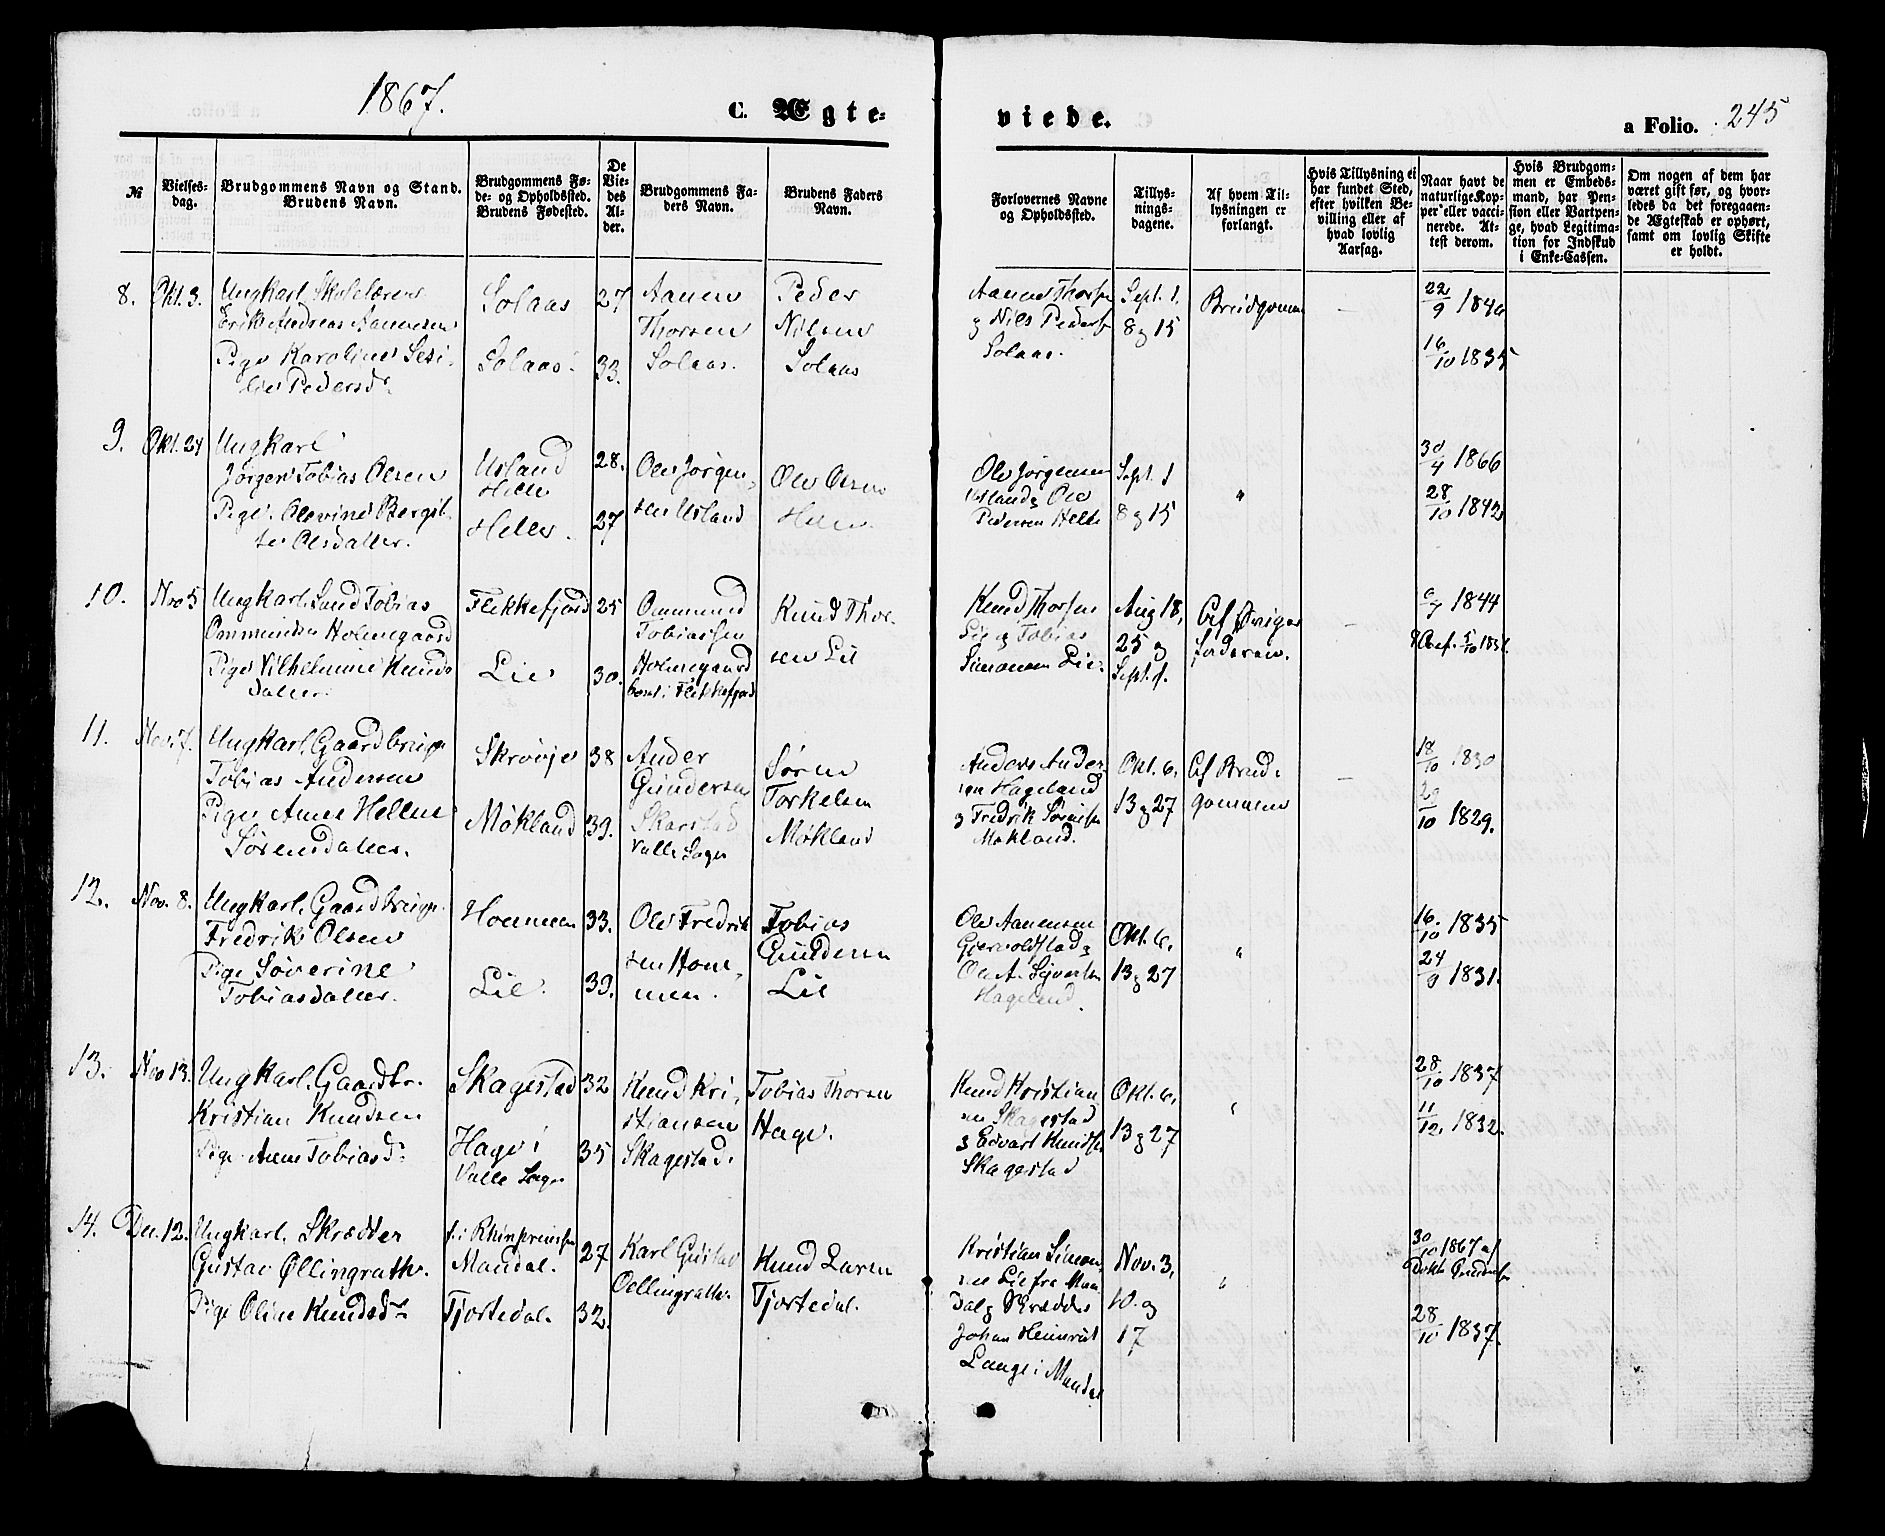 1867.
C. Ægte-
viede.
a Folio. 245
№
Vielses-
dag.
Brudgommens Navn og Stand.
Brudens Navn.
Brudgommens Fø-
de- og Opholdssted.
Brudens Fødested.
De
Vie-
des
Al-
der.
Brudgommens Fa-
ders Navn.
Brudens Faders
Navn.
Forlovernes Navne
og Opholdssted.
Tillys-
nings-
dagene.
Af hvem Til-
lysningen er
forlangt.
Hvis Tillysning ei
har fundet Sted,
efter hvilken Be-
villing eller af
hvad lovlig
Aarsag.
Naar havt de
naturlige Kop-
per eller vacci-
nerede. At-
test derom.
Hvis Brudgom-
men er Embeds-
mand, har Pen-
sion eller Vartpen-
ge, hvad Legitima-
tion for Indskud
i Enke-Cassen.
Om nogen af dem har
været gift før, og hvor-
ledes da det foregaaen-
de Ægteskab er ophørt,
samt om lovlig Skifte
er holdt.
8. Okt. 3.
Ungkarl Skolelærer
Erik Andreas Aanensen
Pige Karoline Sesi-
lie Pedersd.
Solaas
Solaas
27
33.
Aanen
Thorsen
Solaas.
Peder
Nilsen
Solaas
Aanen Thorsen
g Nils Peders
Solaas.
Sept. 1.
8 g 15
Brudgommen
22/9 1840
16/10 1835
9. Okt. 24
Ungkarl
Jørgen Tobias Olsen
Pige Olevine Bergit-
te Olsdatter.
Usland
Helle
Helle.
28.
27
Ole Jørgen-
sen Usland
Ole Olsen
Helle.
Ole Jørgensen
Usland g Ole
Pedersen Helle
Sept. 1
8 g 15
"
30/4 1866
28/10 1842
10. Nov 5
Ungkarl Tobias
Ommundsen Holmegaard
Pige Vilhelmine Knuds
datter.
Flekkefjord
Lie
25
30.
Ommund
Tobiassen
Holmegaard
Flekkefjord
Knud Thor-
sen Lie
Knud Thorsen
Lie g Tobias
Simonsen Lie.
Aug 18,
25 g
Sept. 1.
Af
1844
11. Nov 7.
Ungkarl Gaardbruger
Tobias Andersen
Pige Anne Hellene
Sørensdatter.
Skrøvje
Møkland
38
39.
Ander
Gundersen
Skarstad
Valle Sogn
Søren
Torkelsen
Møkland
Anders Ander
sen Hageland
g Fredrik Sørensen
Møkland.
Okt. 6.
13 g 27
Af Brud-
gommen
18/10 1830
29/10 1829.
12. Nov. 8.
Ungkarl. Gaardbruger
Fredrik Olsen
Pige Søverine
Tobiasdatter.
Hommen
Lie.
33.
39.
Ole Fredrik
sen Hom-
men.
Tobias
Gundersen
Lie
Ole Aanensen
Gjervoldstad g
Ole A. Syvertsen
Hageland.
Okt. 6.
13 g 27
"
16/10 1835
24/9 1831.
13. Nov 13.
Ungkarl. Gaardbr.
Kristian Knudsen
Pige Anne Tobiasd.
Skagestad
Hage i
Valle Sogn
32
35
Knud Kri-
stiansen
Skagestad.
Tobias Thorsen
Hage.
Knud Kristian
sen Skagestad
g Edvart Knudsen
Skagestad
Okt. 6.
13 g 27
"
28/10 1837
11/12 1832.
14. Dec. 12.
Ungkarl. Skrædder
Gustav Øllingrath.
Pige Oline Knudsd.
f. i Rhinpreussen
Mandal.
Tjortedal.
27
32.
Karl Gustav
Oellingrath.
Knud Larsen
Tjortedal.
Kristian Simon-
sen Lie fra Man
dal g Skrædder
Johan Heinrich
Lange i Mandal
Nov. 3,
10. og
17
"
30/10 1867 af
28/10 1837.